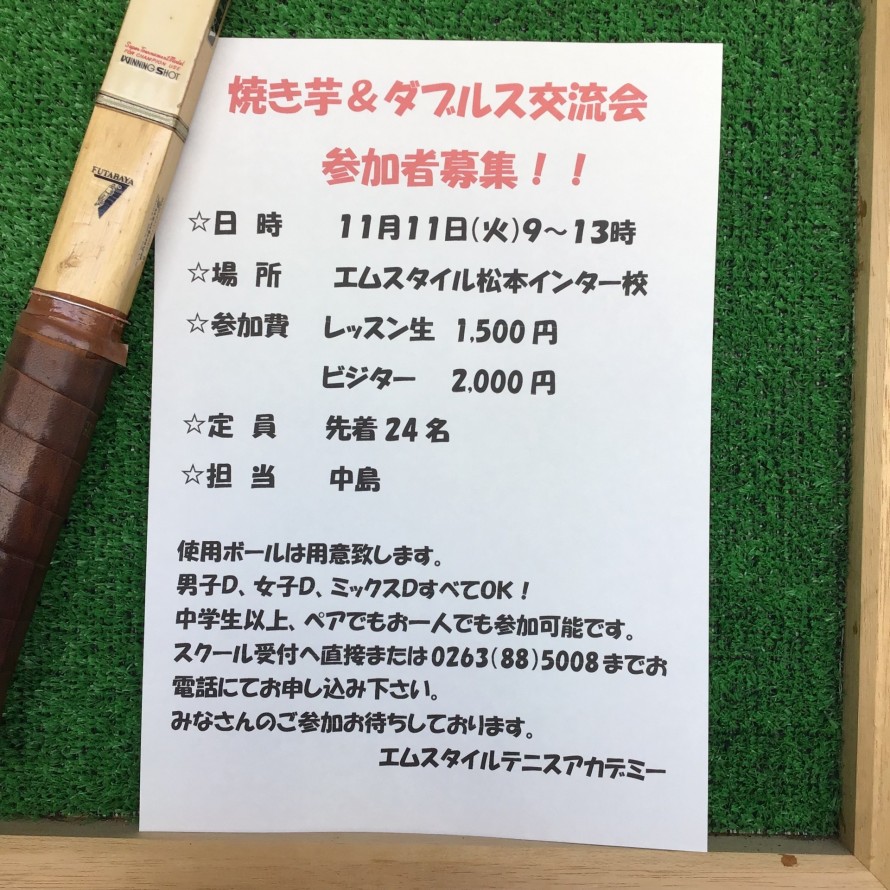 Super Tournament Model
FOR CHAMPION USE
WINNING SHOT
FUTABAYA
焼き芋＆ダブルス交流会
参加者募集！！
☆日 時 11月11日(火)9～13時
☆場 所 エムスタイル松本インター校
☆参加費 レッスン生 1,500円
ビジター 2,000円
☆定 員 先着24名
☆担 当 中島
使用ボールは用意致します。
男子D、女子D、ミックスDすべてOK！
中学生以上、ペアでもお一人でも参加可能です。
スクール受付へ直接または0263(88)5008までお
電話にてお申し込み下さい。
みなさんのご参加お待ちしております。
エムスタイルテニスアカデミー